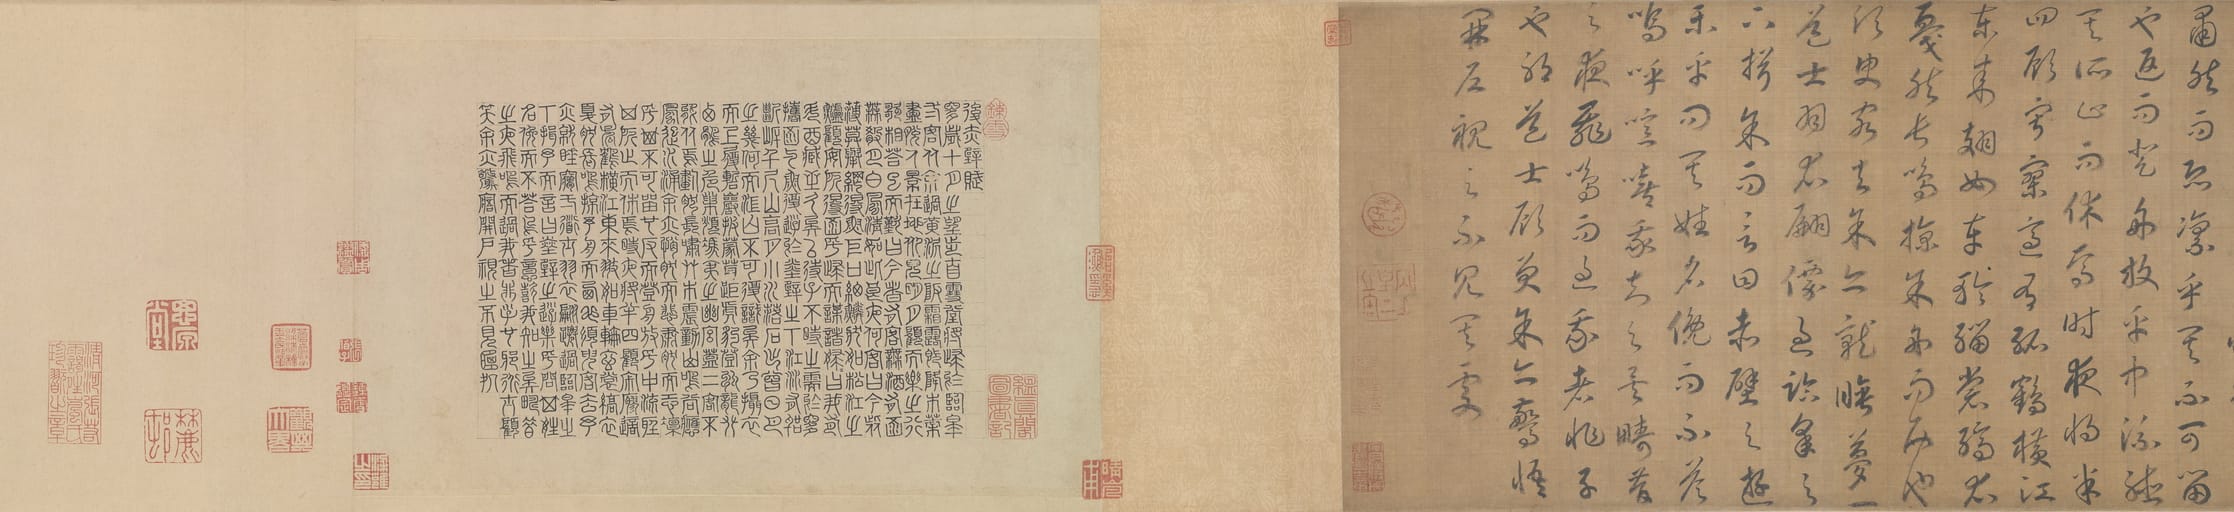 肅然而恐凜乎其不可留
也返而登舟放乎中流聽
其所止而休焉時夜將半
四顧寂寥適有孤鶴橫江
東來翅如車輪玄裳縞衣
戛然長鳴掠余舟而西也
須臾客去余亦就睡夢一
道士羽衣翩僊過臨皋之
下揖余而言曰赤壁之遊
樂乎問其姓名俛而不答
嗚呼噫嘻我知之矣疇昔
之夜飛鳴而過我者非子
也邪道士顧笑余亦驚悟
開戶視之不見其處
後赤壁賦
是歲十月之望步自雪堂將歸於臨皋
二客從余過黃泥之坂霜露既降木葉
盡脫人景在地仰見明月顧而樂之行
歌相荅已而歎曰有客無酒有酒
無肴月白風清如此良夜何客曰今者
薄莫舉網得魚巨口細鱗狀如松江之
鱸顧安所得酒乎歸而謀諸婦婦曰我有
斗酒藏之久矣以待子不時之需於是
攜酒與魚復遊於赤壁之下江流有聲
斷岸千尺山高月小水落石出曾日月
之幾何而江山不可復識矣余乃攝衣
而上履巉巖披蒙茸踞虎豹登虯龍攀
栖鶻之危巢俯馮夷之幽宮蓋二客不
能從焉劃然長嘯草木震動山鳴谷應
風起水涌余亦悄然而悲肅然而恐凜
乎其不可留也反而登舟放乎中流聽
其所止而休焉時夜將半四顧寂寥適
有孤鶴橫江東來翅如車輪玄裳縞衣
戛然長鳴掠予舟而西也須臾客去予
亦就睡夢二道士羽衣翩僊過臨皋之
下揖予而言曰赤壁之遊樂乎問其姓
名俛而不答嗚乎噫嘻我知之矣疇昔
之夜飛鳴而過我者非子也邪道士顧
笑余亦驚寤開戶視之不見其處